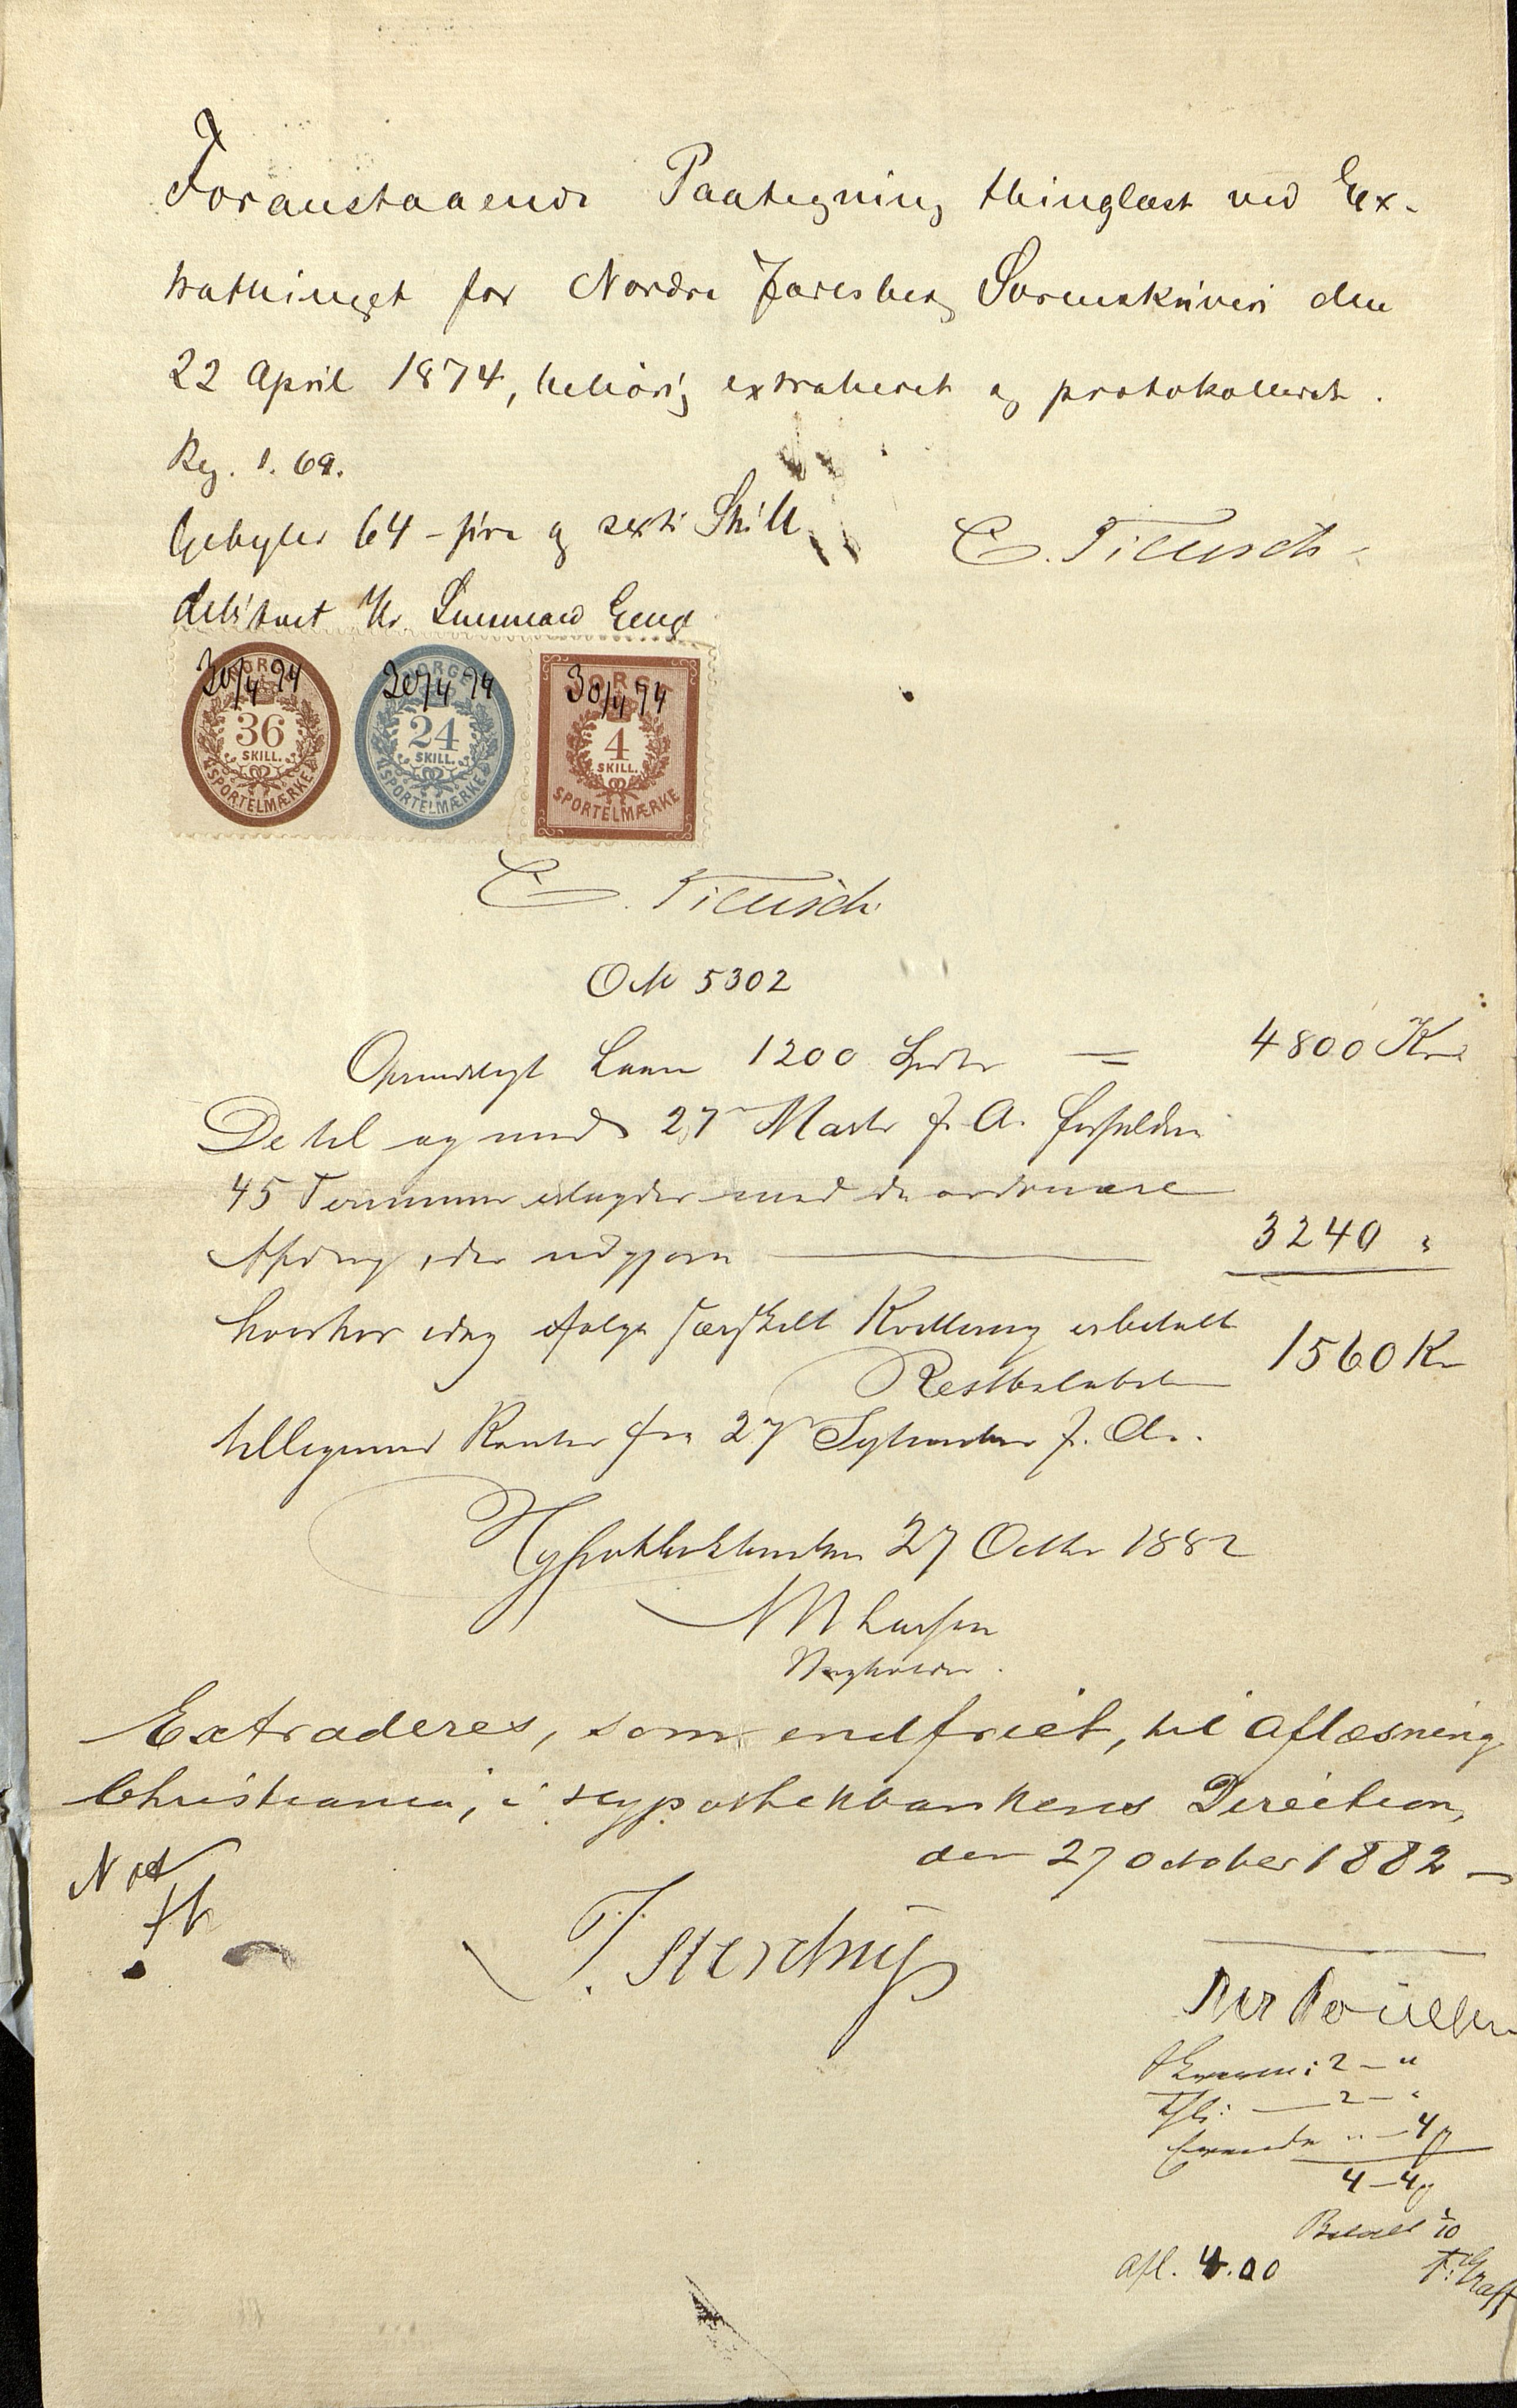 Foranstaaende Paategning thinglæst ved Ex-
trathinget for Nordre Jarlsberg Sorenskriveri den
22 April 1874, behörig extraheret og protokolleret.
Reg. 1. 69.
Gebyhr 64 - fire og sexti Skill
debiteret Hr. Eeng
C. Tileusch
30/4 74
20/4 74
30/4 74
NORGE 36 SKILL. SPORTELMÆRKE
NORGE 24 SKILL. SPORTELMÆRKE
NORGE 4 SKILL. SPORTELMÆRKE
C. Tileusch
5302
Oprindeligt Laan 1200 Spdlr = 4800 Kr
De til og med 27 Marts f. A. forfaldne
45 Terminer erlagder med de ordinære
Afdrag, der udgjøre 3240 "
hvorhos idag ifølge særskilt Kvittering er betalt
Restbeløbet 1560 Kr
tilligemed Renter fra 27 September f. A.
Hypothekbanken 27 Octbr 1882
Larsen
Bogholder.
Extraderes, som indfriet, til Aflæsning
Christiania, i Hypothekbankens Direction,
den 27 October 1882
Not
2 - "
2 - "
" - 40
4 - 40
Betalt
Afl. 4.00